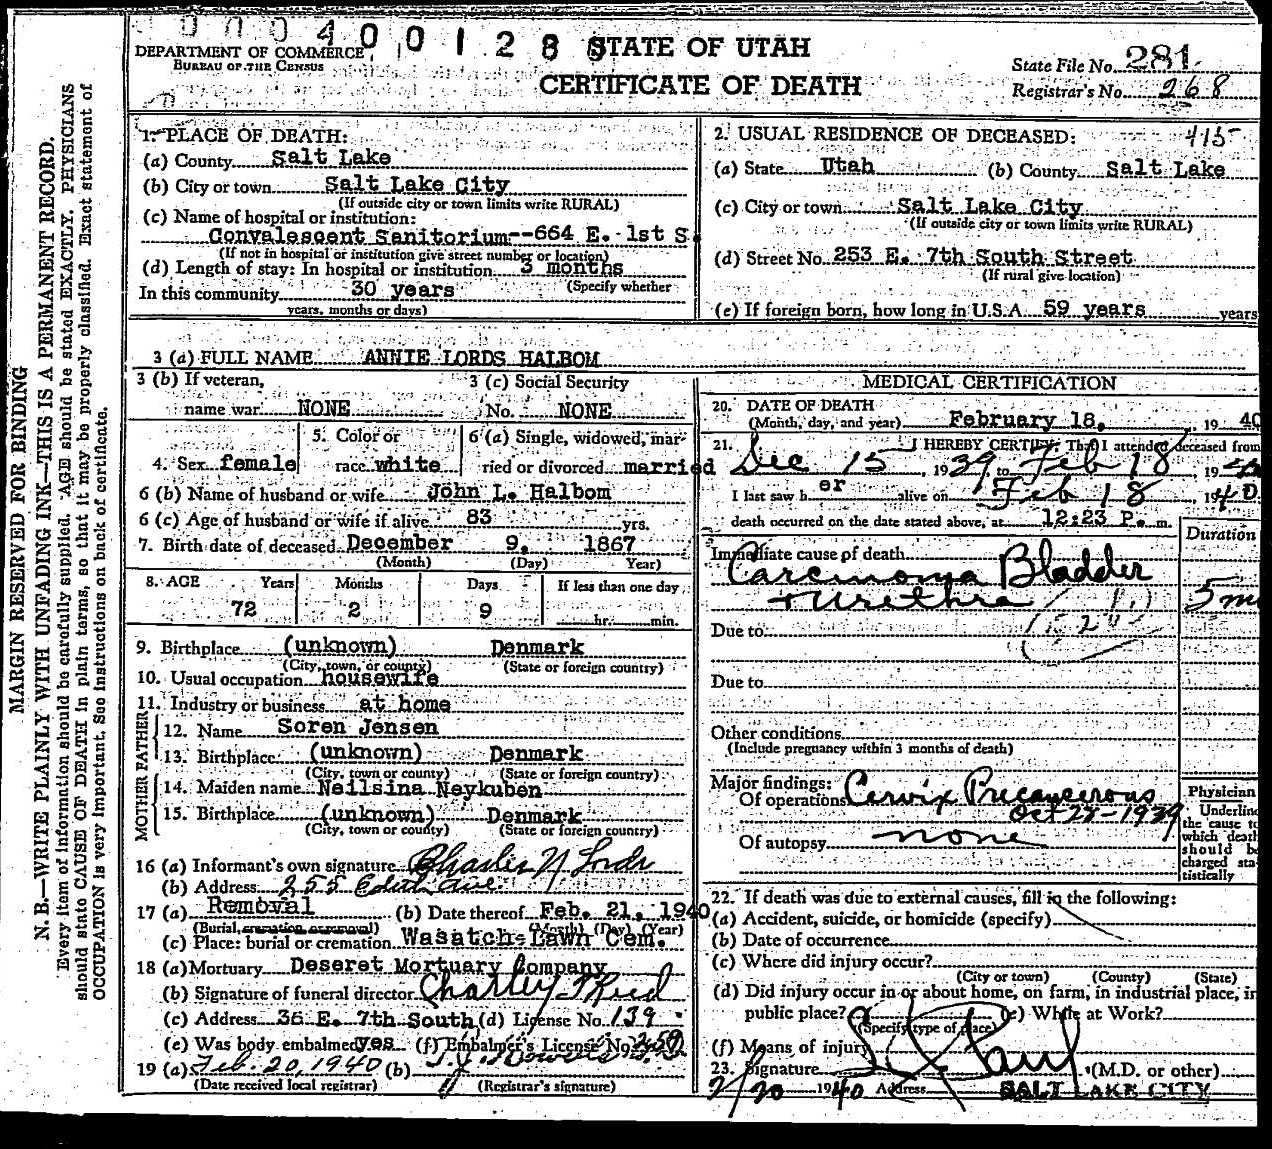 0004001288 STATE OF UTAH
DEPARTMENT OF COMMERCE
BUREAU OF THE CENSUS
CERTIFICATE OF DEATH
State File No. 281
Registrar's No. 268
1. PLACE OF DEATH:
(a) County Salt Lake
(b) City or town Salt Lake City
(If outside city or town limits write RURAL)
(c) Name of hospital or institution:
Convalescent Sanitorium--664 E. 1st S.
(If not in hospital or institution give street number or location)
(d) Length of stay: In hospital or institution 3 months
(Specify whether
In this community 30 years
years, months or days)
2. USUAL RESIDENCE OF DECEASED: 415
(a) State Utah (b) County Salt Lake
(c) City or town Salt Lake City
(If outside city or town limits write RURAL)
(d) Street No. 253 E. 7th South Street
(If rural give location)
(e) If foreign born, how long in U.S.A. 59 years years
3 (a) FULL NAME ANNIE LORDS HALBOM
3 (b) If veteran, 3 (c) Social Security
name war NONE No. NONE
4. Sex female 5. Color or race white 6 (a) Single, widowed, married or divorced married
6 (b) Name of husband or wife John L. Halbom
6 (c) Age of husband or wife if alive 83 yrs.
7. Birth date of deceased December 9, 1867
(Month) (Day) Year)
8. AGE Years Months Days If less than one day
72 2 9 hr. min.
9. Birthplace (unknown) Denmark
(City, town, or county) (State or foreign country)
10. Usual occupation housewife
11. Industry or business at home
FATHER
12. Name Soren Jensen
13. Birthplace (unknown) Denmark
(City, town or county) (State or foreign country)
MOTHER
14. Maiden name Neilsina Neykuben
15. Birthplace (unknown) Denmark
(City, town or county) (State or foreign country)
16 (a) Informant's own signature Charles N Lords
(b) Address 255 Edith Ave.
17 (a) Removal (b) Date thereof Feb. 21, 1940
(Burial, cremation or removal) (Month) (Day) (Year)
(c) Place: burial or cremation Wasatch Lawn Cem.
18 (a) Mortuary Deseret Mortuary Company
(b) Signature of funeral director Charley Reed
(c) Address 36 E. 7th South (d) License No. 139
(e) Was body embalmed yes (f) Embalmer's License No. 250
19 (a) Feb. 20, 1940 (b)
(Date received local registrar) (Registrar's signature)
MEDICAL CERTIFICATION
20. DATE OF DEATH
(Month, day, and year) February 18, 1940
21. I HEREBY CERTIFY. That I attended deceased from
Dec 15, 1939 to Feb 18 1940
I last saw her alive on Feb 18, 1940
death occurred on the date stated above, at 12:23 P. m.
Duration
Immediate cause of death
Carcinoma Bladder
+ Urethra 5 mo
Due to 52
Due to
Other conditions
(Include pregnancy within 3 months of death)
Major findings:
Of operations Cervix Precancerous
Oct 27-1939
Of autopsy none
Physician
Underline
the cause to
which death
should be
charged sta-
tistically
22. If death was due to external causes, fill in the following:
(a) Accident, suicide, or homicide (specify)
(b) Date of occurrence
(c) Where did injury occur?
(City or town) (County) (State)
(d) Did injury occur in or about home, on farm, in industrial place, in
public place? (e) While at Work?
(Specify type of place)
(f) Means of injury
23. Signature (M.D. or other)
2/20 1940 Address SALT LAKE CITY
MARGIN RESERVED FOR BINDING
N. B.—WRITE PLAINLY WITH UNFADING INK—THIS IS A PERMANENT RECORD.
Every item of information should be carefully supplied. AGE should be stated EXACTLY. PHYSICIANS
should state CAUSE OF DEATH in plain terms, so that it may be properly classified. Exact statement of
OCCUPATION is very important. See instructions on back of certificate.